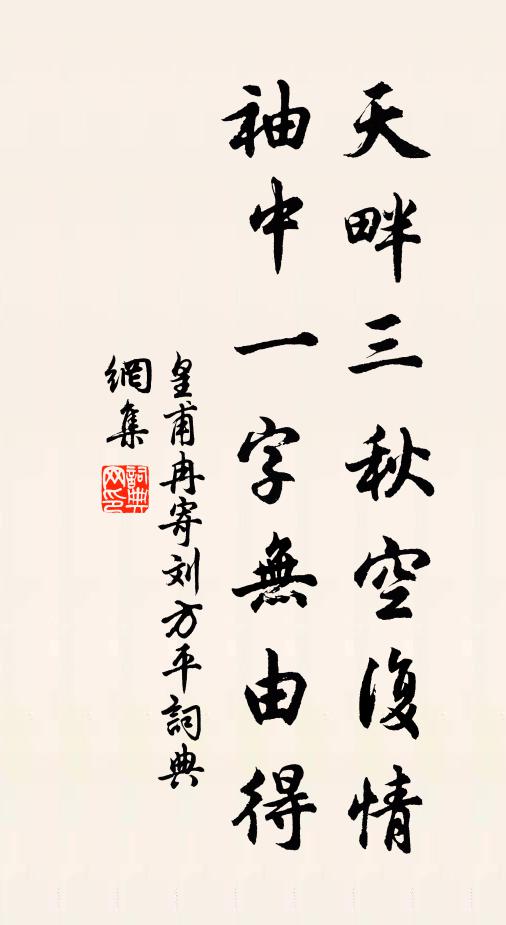 天畔三秋空復情
袖中一字無由得
皇甫冉寄刘方平詞典
網集
詞典网印